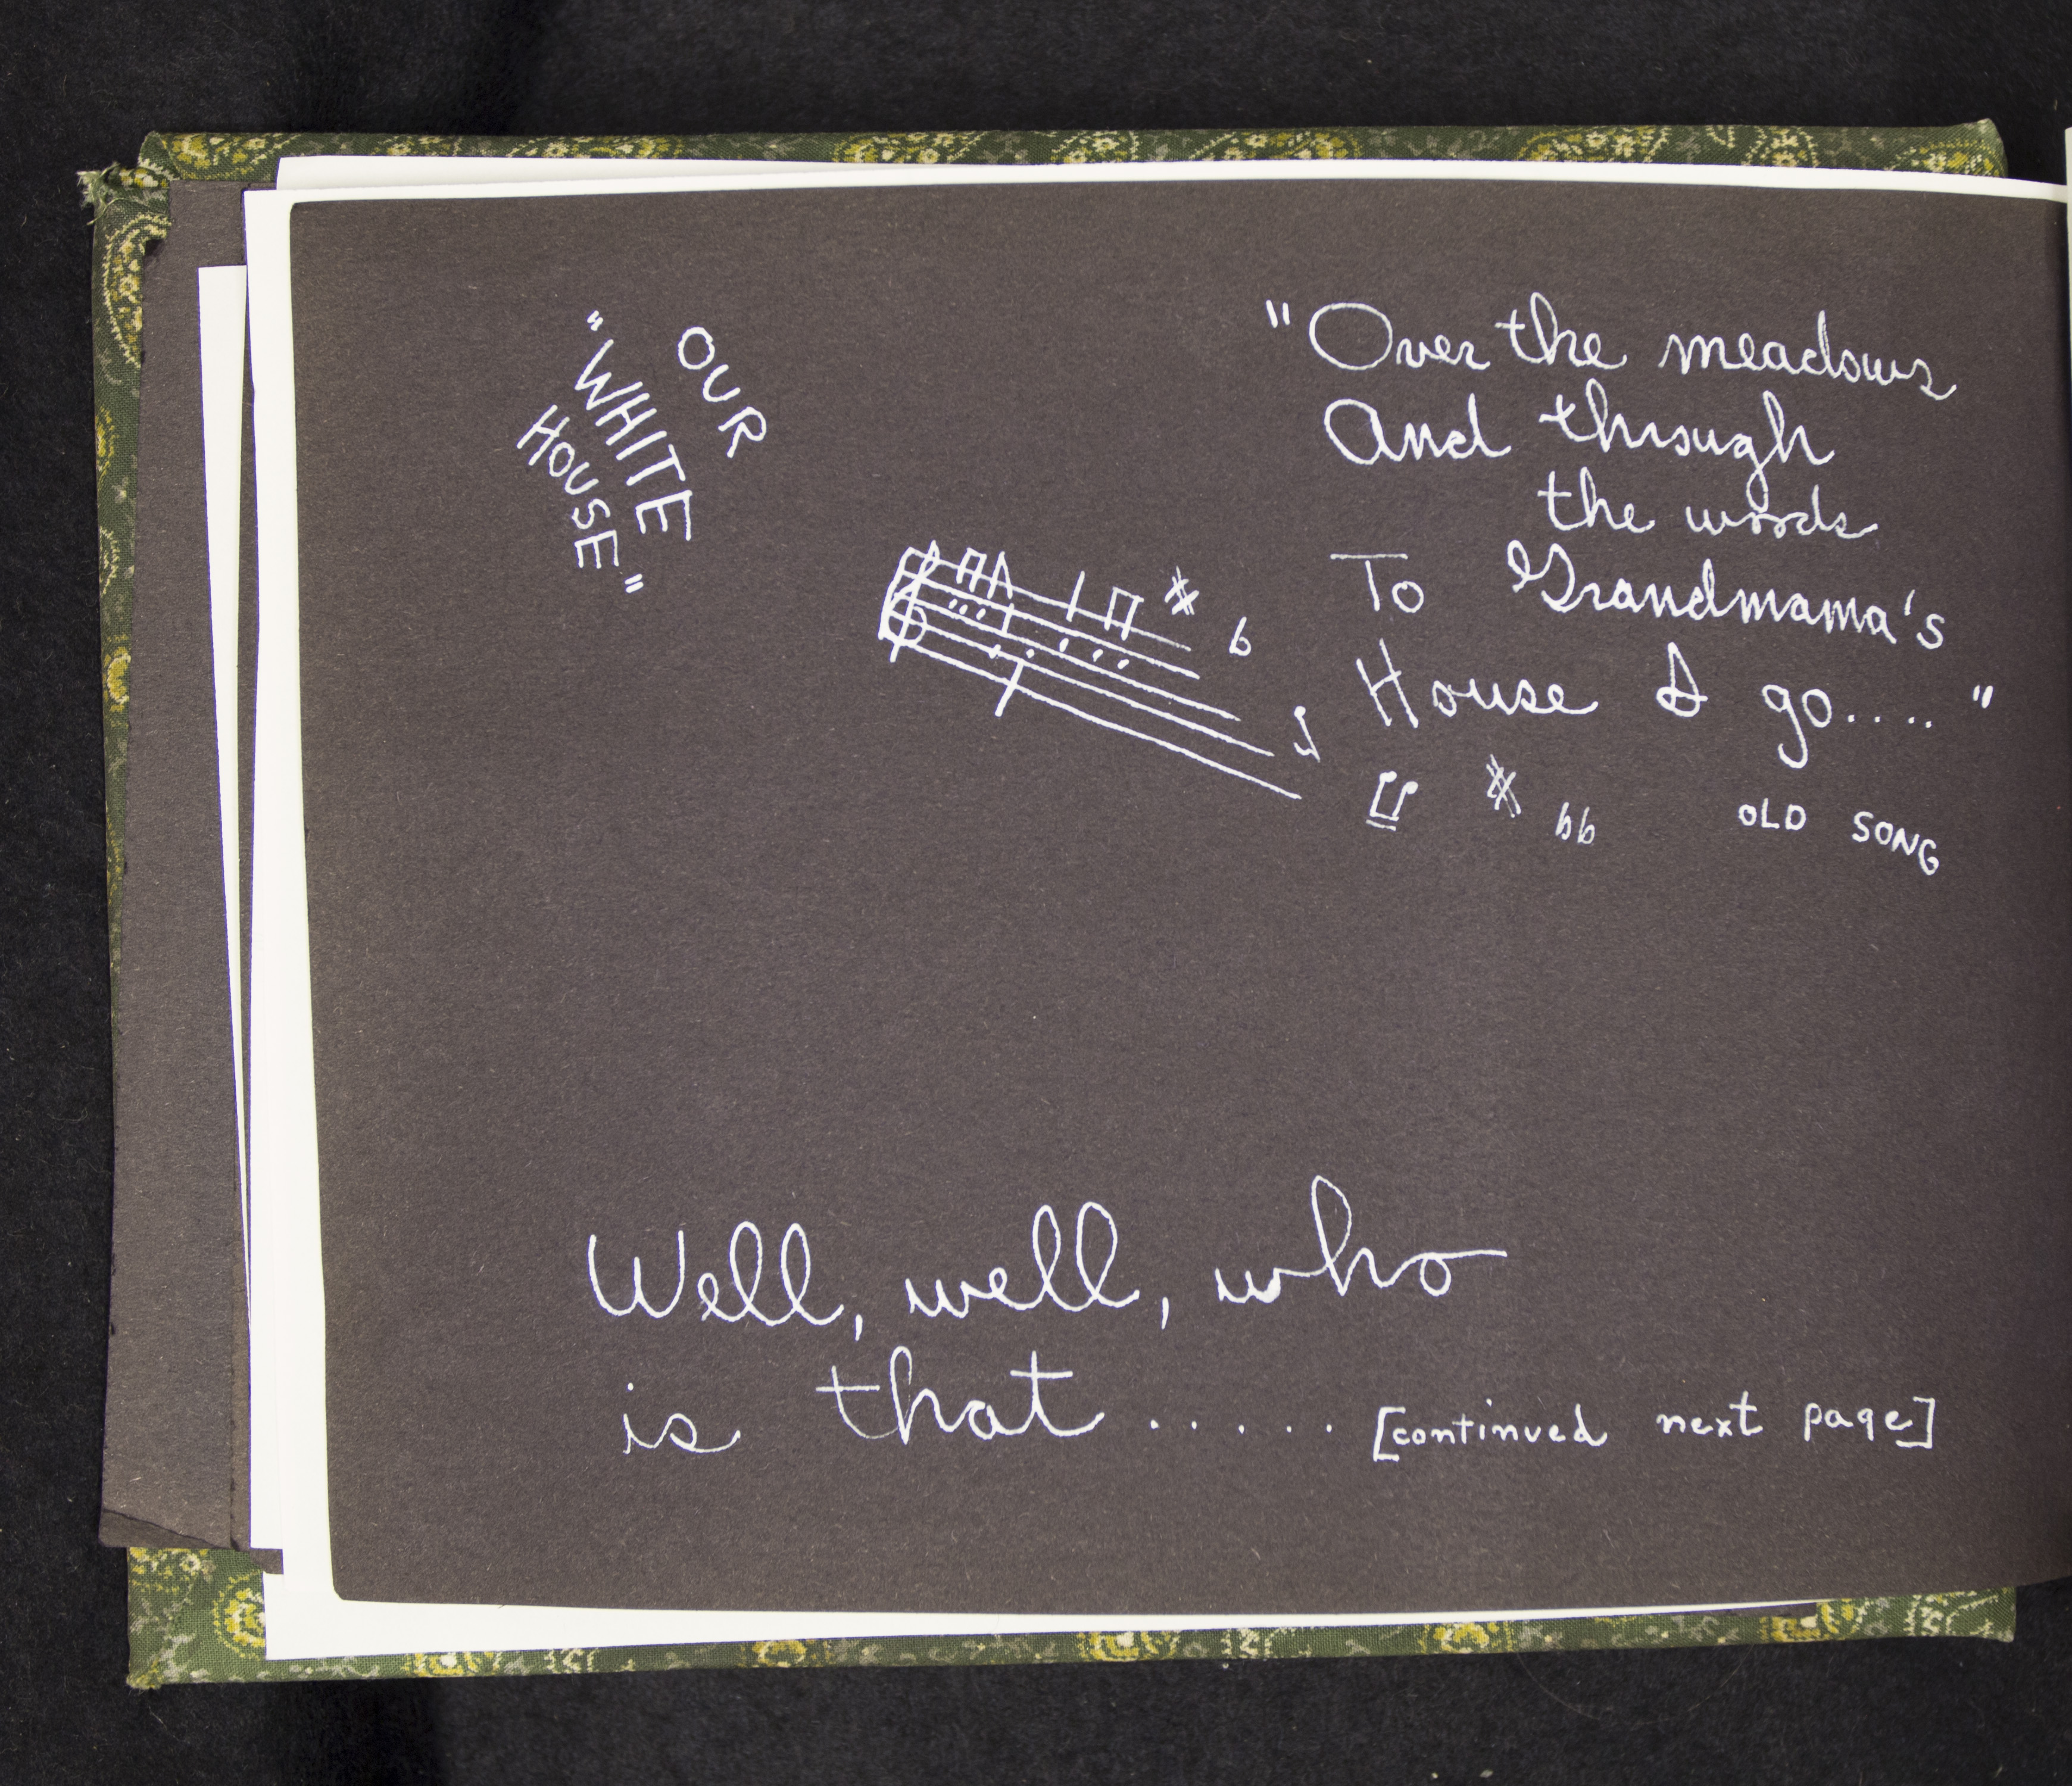 OUR
"WHITE
HOUSE"
"Over the meadows
And through
the woods
To Grandmama's
House I go....."
OLD SONG
Well, well, who
is that ..... [continued next page]